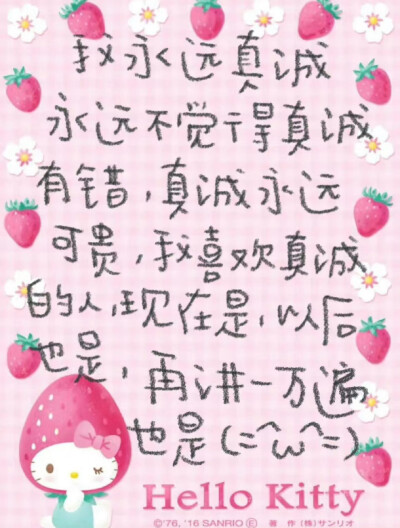 我永远真诚
永远不觉得真诚
有错，真诚永远
可贵，我喜欢真诚
的人，现在是，以后
也是，再讲一万遍
也是(=^ω^=)
Hello Kitty
©'76, '16 SANRIO Ⓔ 著 作 (株)サンリオ